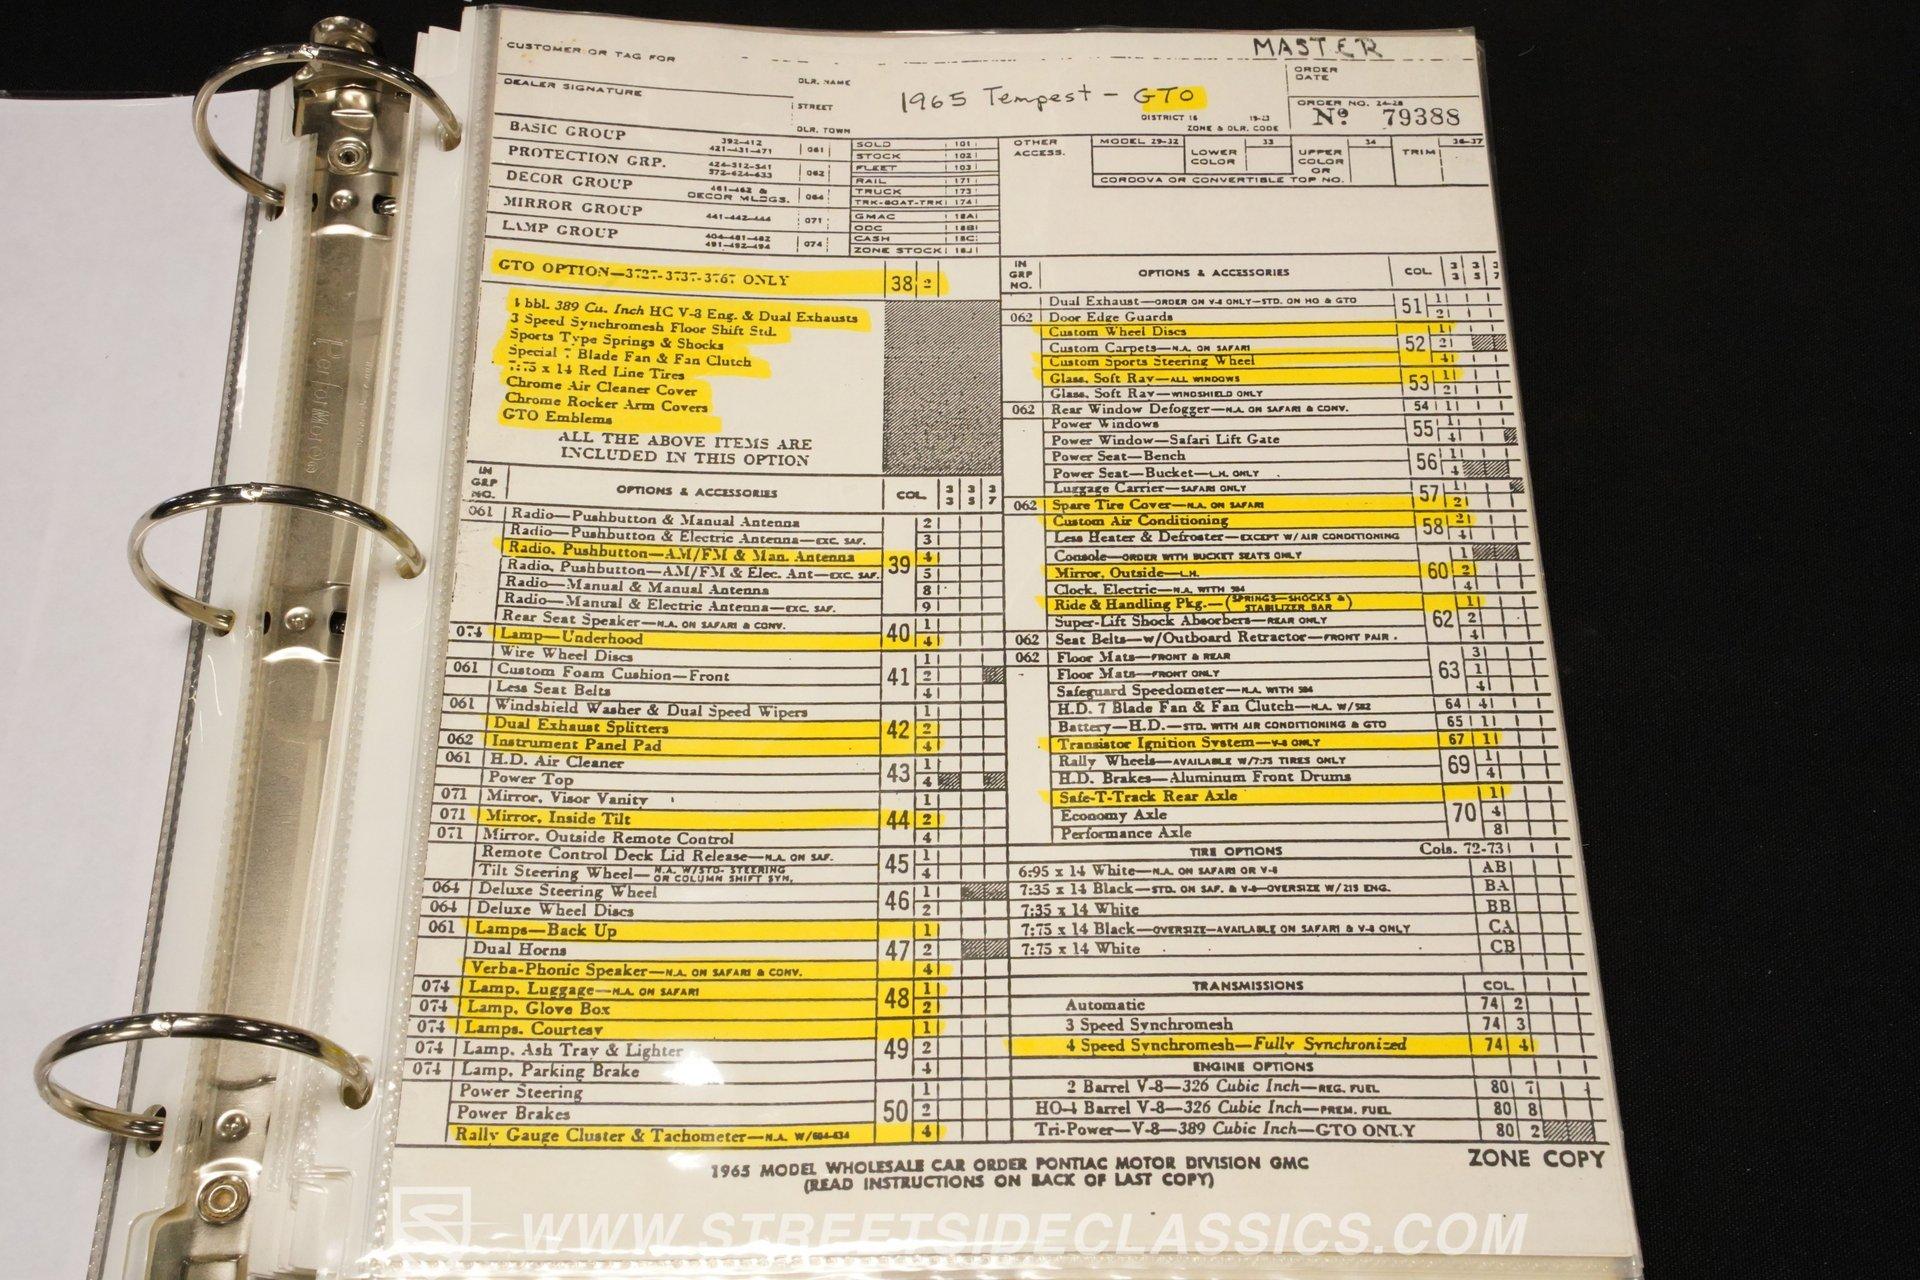 MASTER
CUSTOMER OR TAG FOR
DEALER SIGNATURE
DLR. NAME
STREET
DLR. TOWN
1965 Tempest - GTO
DISTRICT 16 19-23
ZONE & DLR. CODE
ORDER DATE
ORDER NO. 24-28
Nº 79388
BASIC GROUP 392-412 421-431-471 061
PROTECTION GRP. 424-512-541 572-624-633 062
DECOR GROUP 461-462 & DECOR MLDGS. 064
MIRROR GROUP 441-442-444 071
LAMP GROUP 404-481-482 491-492-494 074
SOLD 101
STOCK 102
FLEET 103
RAIL 171
TRUCK 173
TRK-BOAT-TRK 174
GMAC 18A
ODC 18B
CASH 18C
ZONE STOCK 18J
OTHER ACCESS.
MODEL 29-32
LOWER COLOR 33
UPPER COLOR OR 34
TRIM 36-37
CORDOVA OR CONVERTIBLE TOP NO.
GTO OPTION—3727-3737-3767 ONLY 38 2
4 bbl. 389 Cu. Inch HC V-8 Eng. & Dual Exhausts
3 Speed Synchromesh Floor Shift Std.
Sports Type Springs & Shocks
Special 7 Blade Fan & Fan Clutch
7:75 x 14 Red Line Tires
Chrome Air Cleaner Cover
Chrome Rocker Arm Covers
GTO Emblems
ALL THE ABOVE ITEMS ARE
INCLUDED IN THIS OPTION
IN GRP NO. OPTIONS & ACCESSORIES COL. 33 35 37
061 Radio—Pushbutton & Manual Antenna 2
Radio—Pushbutton & Electric Antenna—EXC. SAF. 3
Radio, Pushbutton—AM/FM & Man. Antenna 39 4
Radio, Pushbutton—AM/FM & Elec. Ant—EXC. SAF. 5
Radio—Manual & Manual Antenna 8
Radio—Manual & Electric Antenna—EXC. SAF. 9
Rear Seat Speaker—N.A. ON SAFARI & CONV. 40 1
074 Lamp—Underhood 4
Wire Wheel Discs 1
061 Custom Foam Cushion—Front 41 2
Less Seat Belts 4
061 Windshield Washer & Dual Speed Wipers 1
Dual Exhaust Splitters 42 2
062 Instrument Panel Pad 4
061 H.D. Air Cleaner 43 1
Power Top 4
071 Mirror, Visor Vanity 1
071 Mirror, Inside Tilt 44 2
071 Mirror, Outside Remote Control 4
Remote Control Deck Lid Release—N.A. ON SAF. 45 1
Tilt Steering Wheel—N.A. W/STD. STEERING OR COLUMN SHIFT SYN. 4
064 Deluxe Steering Wheel 46 1
064 Deluxe Wheel Discs 2
061 Lamps—Back Up 1
Dual Horns 47 2
Verba-Phonic Speaker—N.A. ON SAFARI & CONV. 4
074 Lamp, Luggage—N.A. ON SAFARI 48 1
074 Lamp, Glove Box 2
074 Lamps, Courtesy 1
074 Lamp, Ash Tray & Lighter 49 2
074 Lamp, Parking Brake 4
Power Steering 1
Power Brakes 50 2
Rally Gauge Cluster & Tachometer—N.A. W/604-634 4
IN GRP NO. OPTIONS & ACCESSORIES COL. 33 35 37
Dual Exhaust—ORDER ON V-8 ONLY—STD. ON HO & GTO 51 1
062 Door Edge Guards 2
Custom Wheel Discs 1
Custom Carpets—N.A. ON SAFARI 52 2
Custom Sports Steering Wheel 4
Glass, Soft Ray—ALL WINDOWS 53 1
Glass, Soft Ray—WINDSHIELD ONLY 2
062 Rear Window Defogger—N.A. ON SAFARI & CONV. 54 1
Power Windows 55 1
Power Window—Safari Lift Gate 4
Power Seat—Bench 56 1
Power Seat—Bucket—L.H. ONLY 4
Luggage Carrier—SAFARI ONLY 57 1
062 Spare Tire Cover—N.A. ON SAFARI 2
Custom Air Conditioning 58 2
Less Heater & Defroster—EXCEPT W/AIR CONDITIONING 4
Console—ORDER WITH BUCKET SEATS ONLY 1
Mirror, Outside—L.H. 60 2
Clock, Electric—N.A. WITH 504 4
Ride & Handling Pkg.—(SPRINGS—SHOCKS & STABILIZER BAR) 1
Super-Lift Shock Absorbers—REAR ONLY 62 2
062 Seat Belts—w/Outboard Retractor—FRONT PAIR. 4
062 Floor Mats—FRONT & REAR 3
Floor Mats—FRONT ONLY 63 1
Safeguard Speedometer—N.A. WITH 504 4
H.D. 7 Blade Fan & Fan Clutch—N.A. W/582 64 4
Battery—H.D.—STD. WITH AIR CONDITIONING & GTO 65 1
Transistor Ignition System—V-8 ONLY 67 1
Rally Wheels—AVAILABLE W/7:75 TIRES ONLY 69 1
H.D. Brakes—Aluminum Front Drums 4
Safe-T-Track Rear Axle 1
Economy Axle 70 4
Performance Axle 8
TIRE OPTIONS Cols. 72-73
6:95 x 14 White—N.A. ON SAFARI OR V-8 AB
7:35 x 14 Black—STD. ON SAF. & V-8—OVERSIZE W/215 ENG. BA
7:35 x 14 White BB
7:75 x 14 Black—OVERSIZE—AVAILABLE ON SAFARI & V-8 ONLY CA
7:75 x 14 White CB
TRANSMISSIONS COL.
Automatic 74 2
3 Speed Synchromesh 74 3
4 Speed Synchromesh—Fully Synchronized 74 4
ENGINE OPTIONS
2 Barrel V-8—326 Cubic Inch—REG. FUEL 80 7
HO-4 Barrel V-8—326 Cubic Inch—PREM. FUEL 80 8
Tri-Power—V-8—389 Cubic Inch—GTO ONLY 80 2
1965 MODEL WHOLESALE CAR ORDER PONTIAC MOTOR DIVISION GMC
(READ INSTRUCTIONS ON BACK OF LAST COPY)
ZONE COPY
WWW.STREETSIDECLASSICS.COM